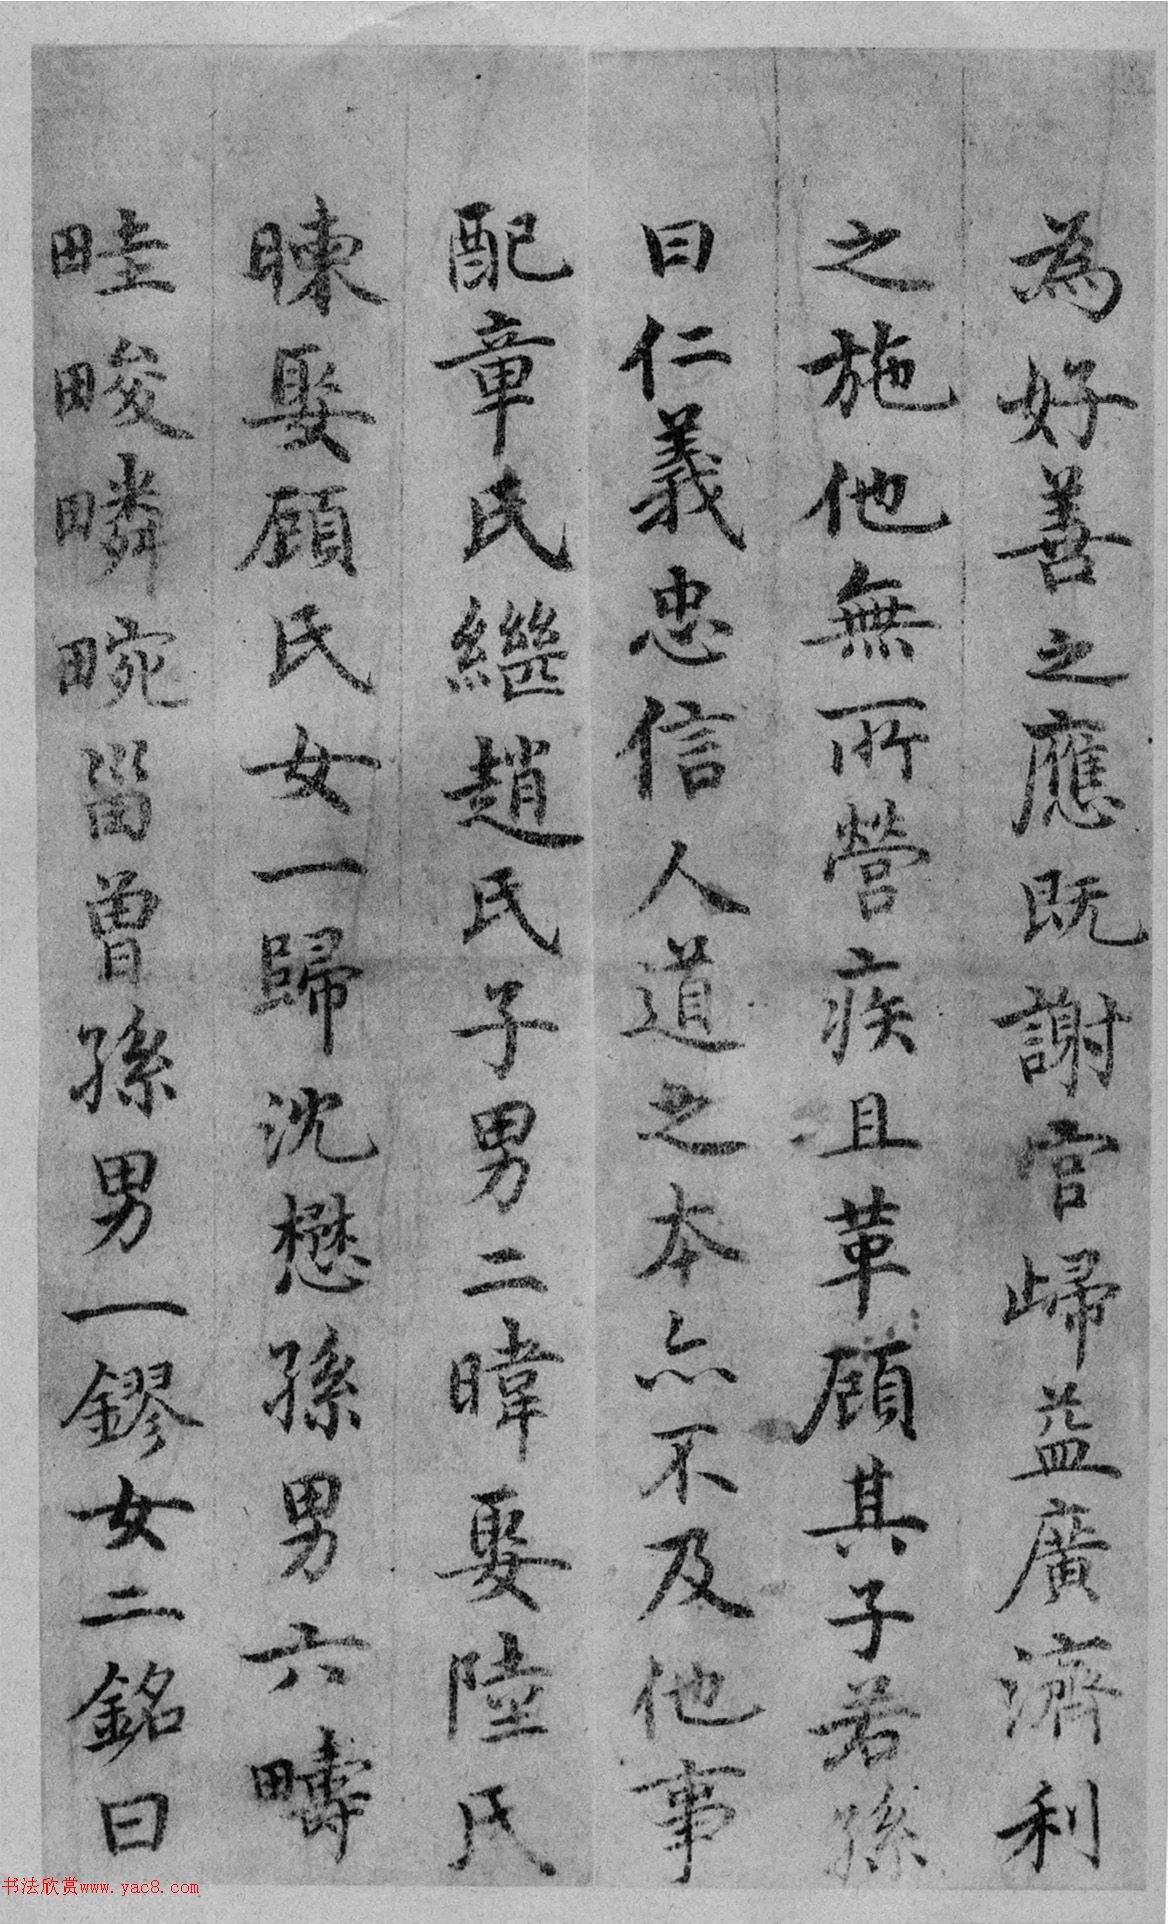 為好善之應既謝官歸益廣濟利
之施他無所營疾且革顧其子若孫
曰仁義忠信人道之本亦不及他事
配章氏繼趙氏子男二暐娶陸氏
暕娶顧氏女一歸沈懋孫男六疇
畦畯疄畹畱曾孫男一鏐女二銘曰
书法欣赏www.yac8.com